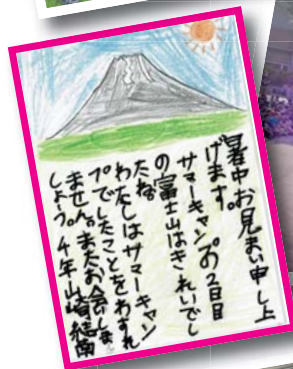 暑中お見まい申し上
げます。
サマーキャンプの2日目
の富士山はきれいでし
たね。
わたしはサマーキャン
プでしたことをわすれ
ません。またお会いしま
しょう。4年 山崎結南